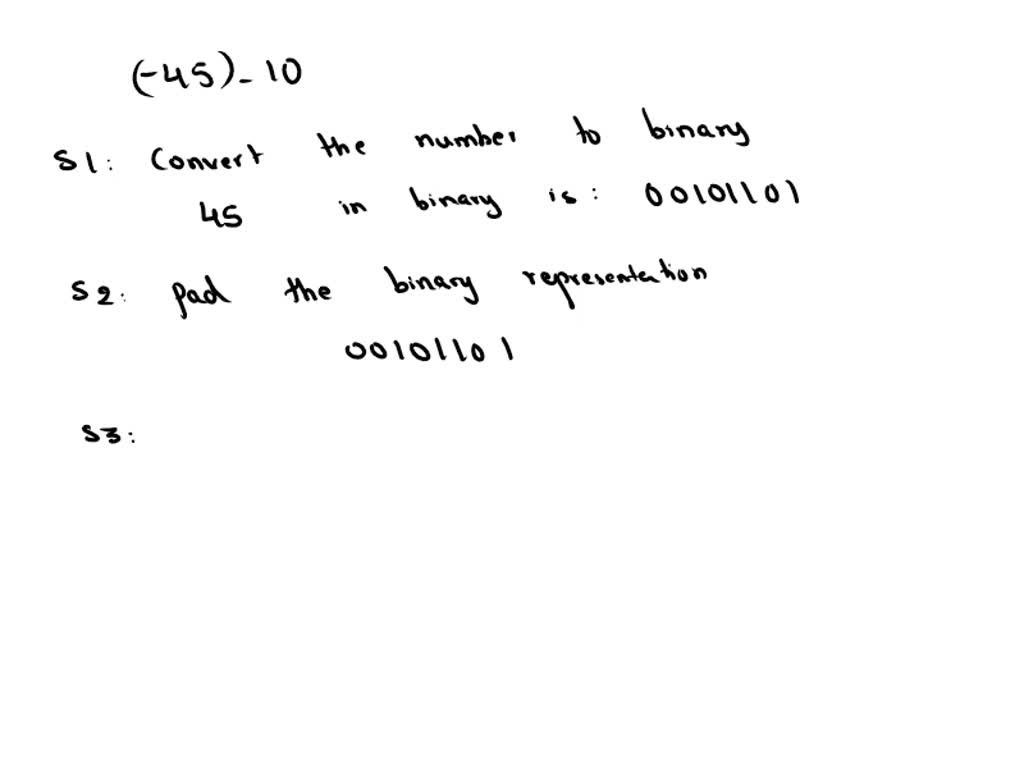 (-45)-10
S1: Convert the number to binary
45 in binary is: 00101101
S2: Pad the binary representation
00101101
S3: